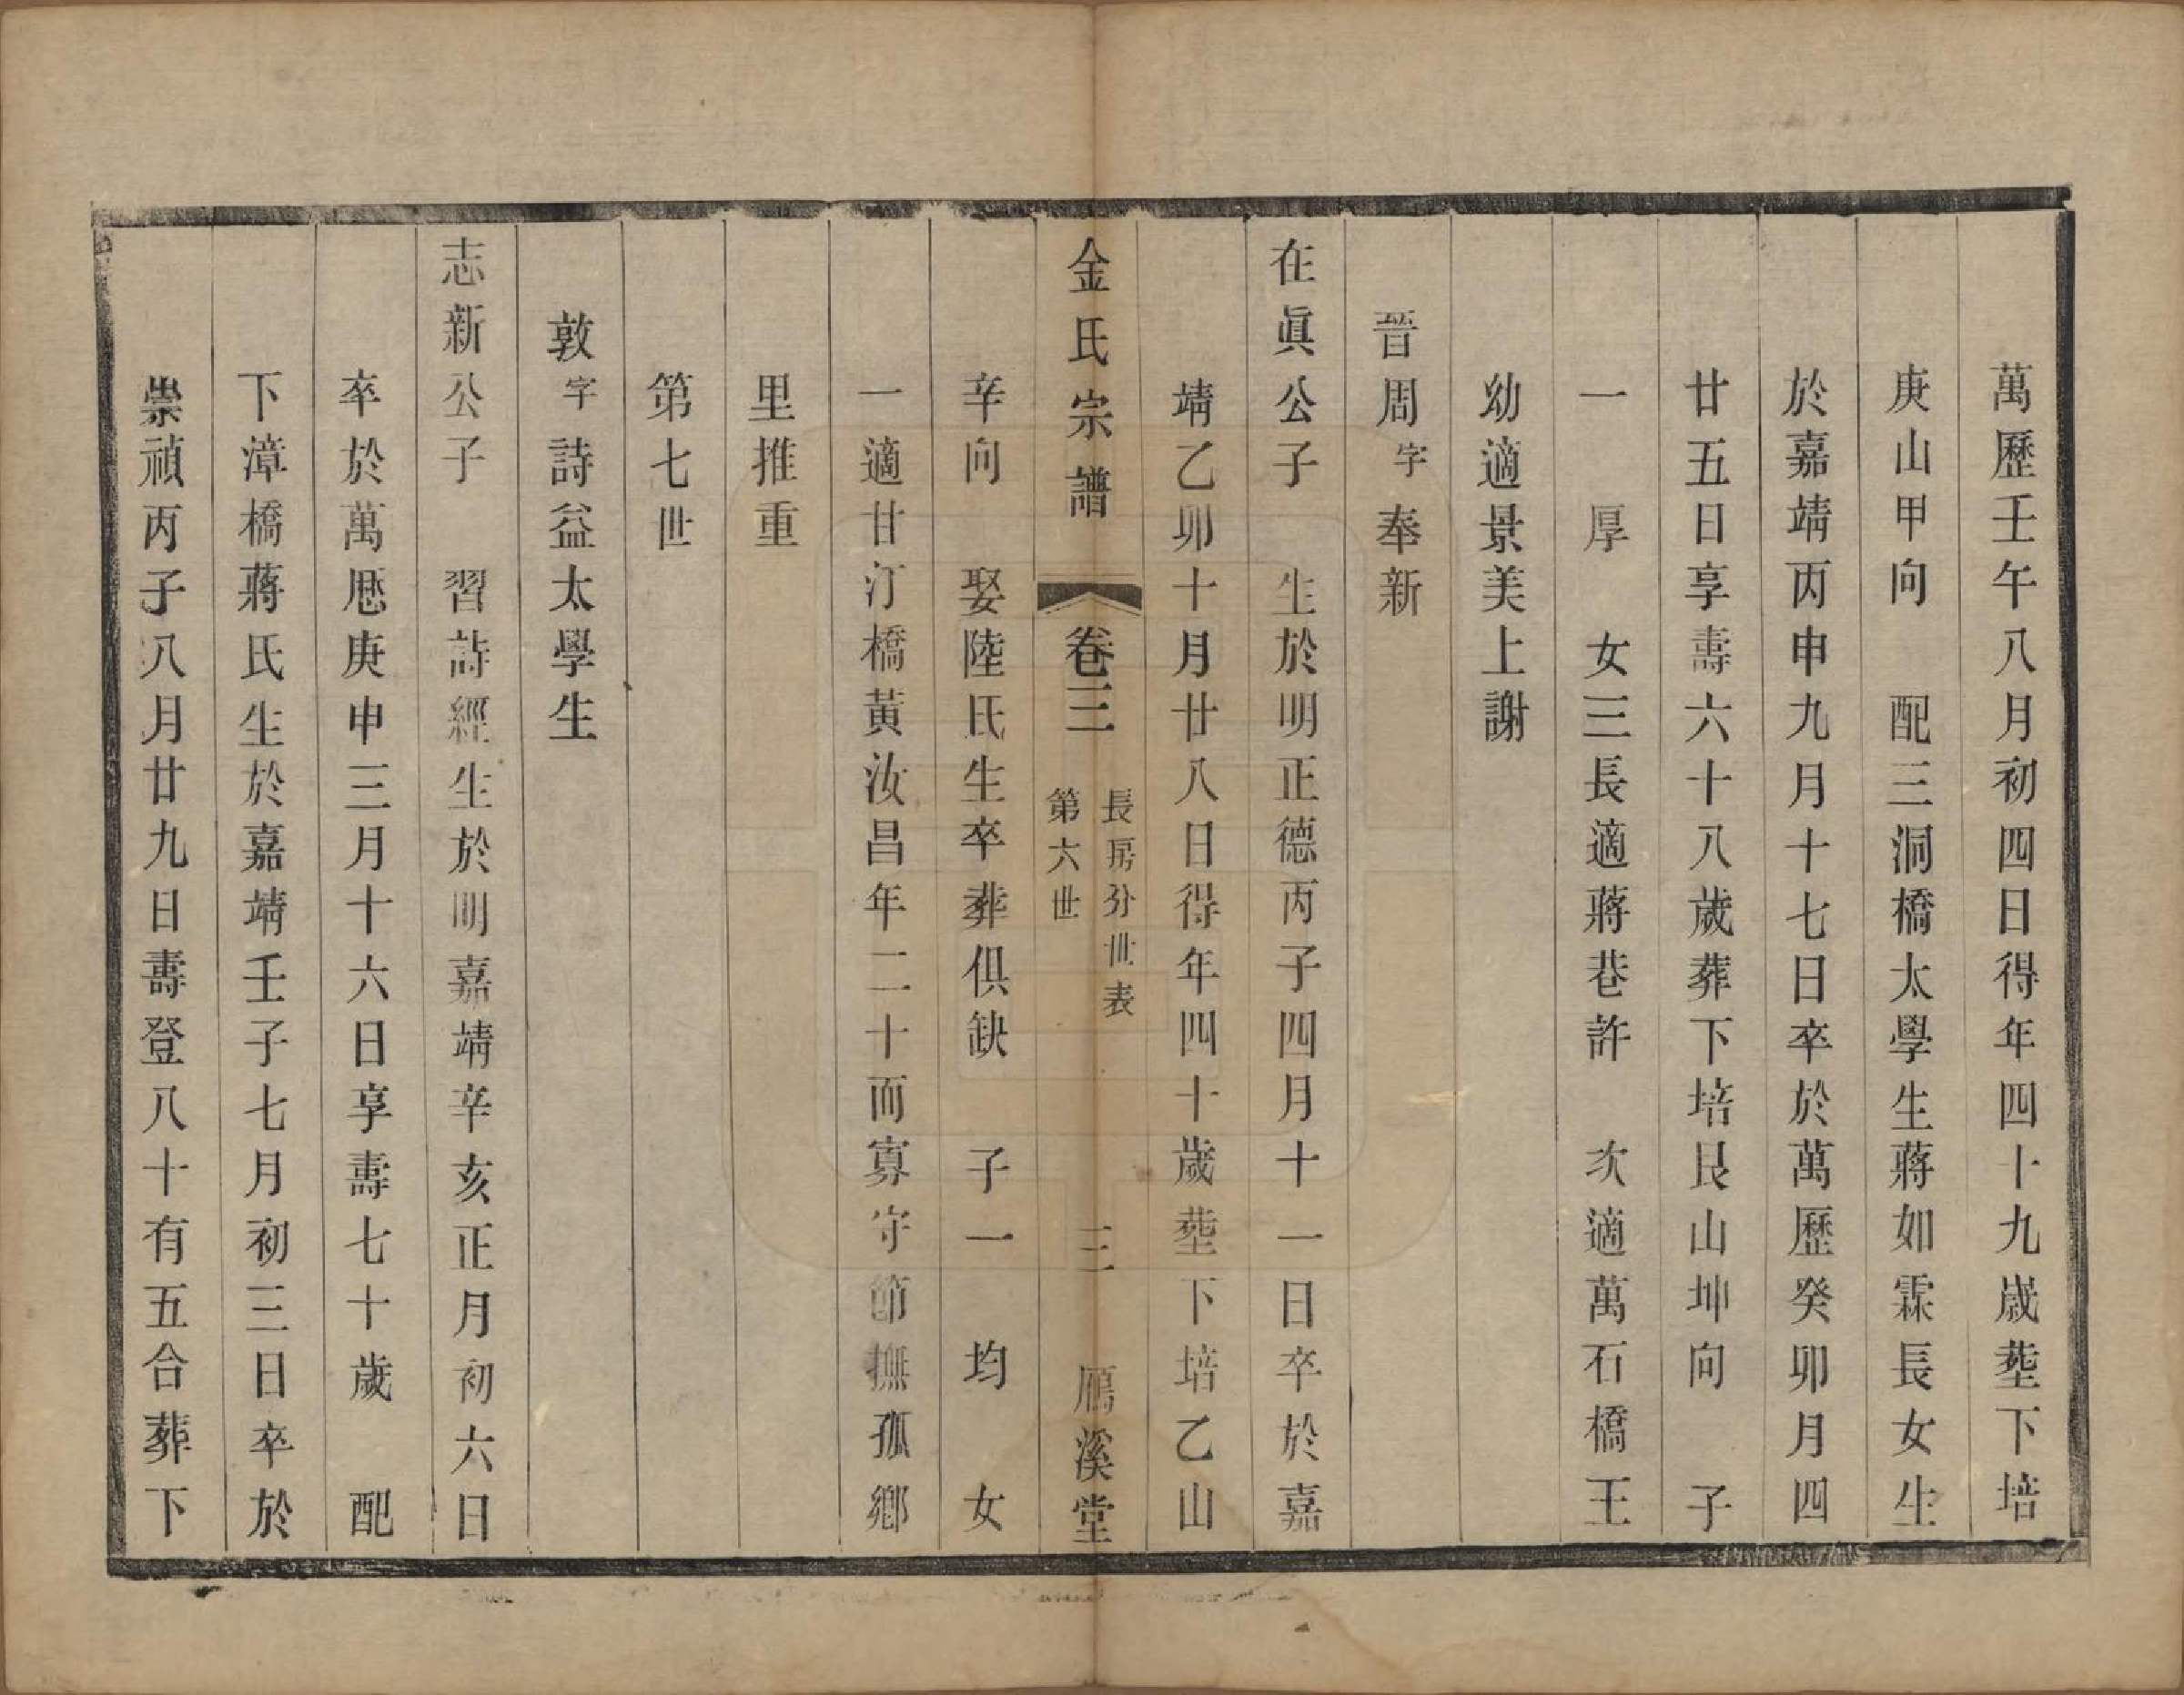 萬歷壬午八月初四日得年四十九歲塟下培
庚山甲向　配三洞橋太學生蔣如霖長女生
於嘉靖丙申九月十七日卒於萬歷癸卯月四
廿五日享壽六十八歲葬下培艮山坤向　子
一　厚　女三長適蔣巷許　次適萬石橋王
幼適景美上謝
晉周字奉新
在眞公子　生於明正德丙子四月十一日卒於嘉
靖乙卯十月廿八日得年四十歲塟下培乙山
辛向　娶陸氏生卒葬俱缺　子一　均　女
一適甘汀橋黃汝昌年二十而寡守節撫孤鄉
里推重
第七世
敦字詩益太學生
志新公子　習詩經生於明嘉靖辛亥正月初六日
卒於萬厯庚申三月十六日享壽七十歲　配
下漳橋蔣氏生於嘉靖壬子七月初三日卒於
崇禎丙子八月廿九日壽登八十有五合葬下
金氏宗譜　卷三
長房分世表
第六世
三　鴈溪堂